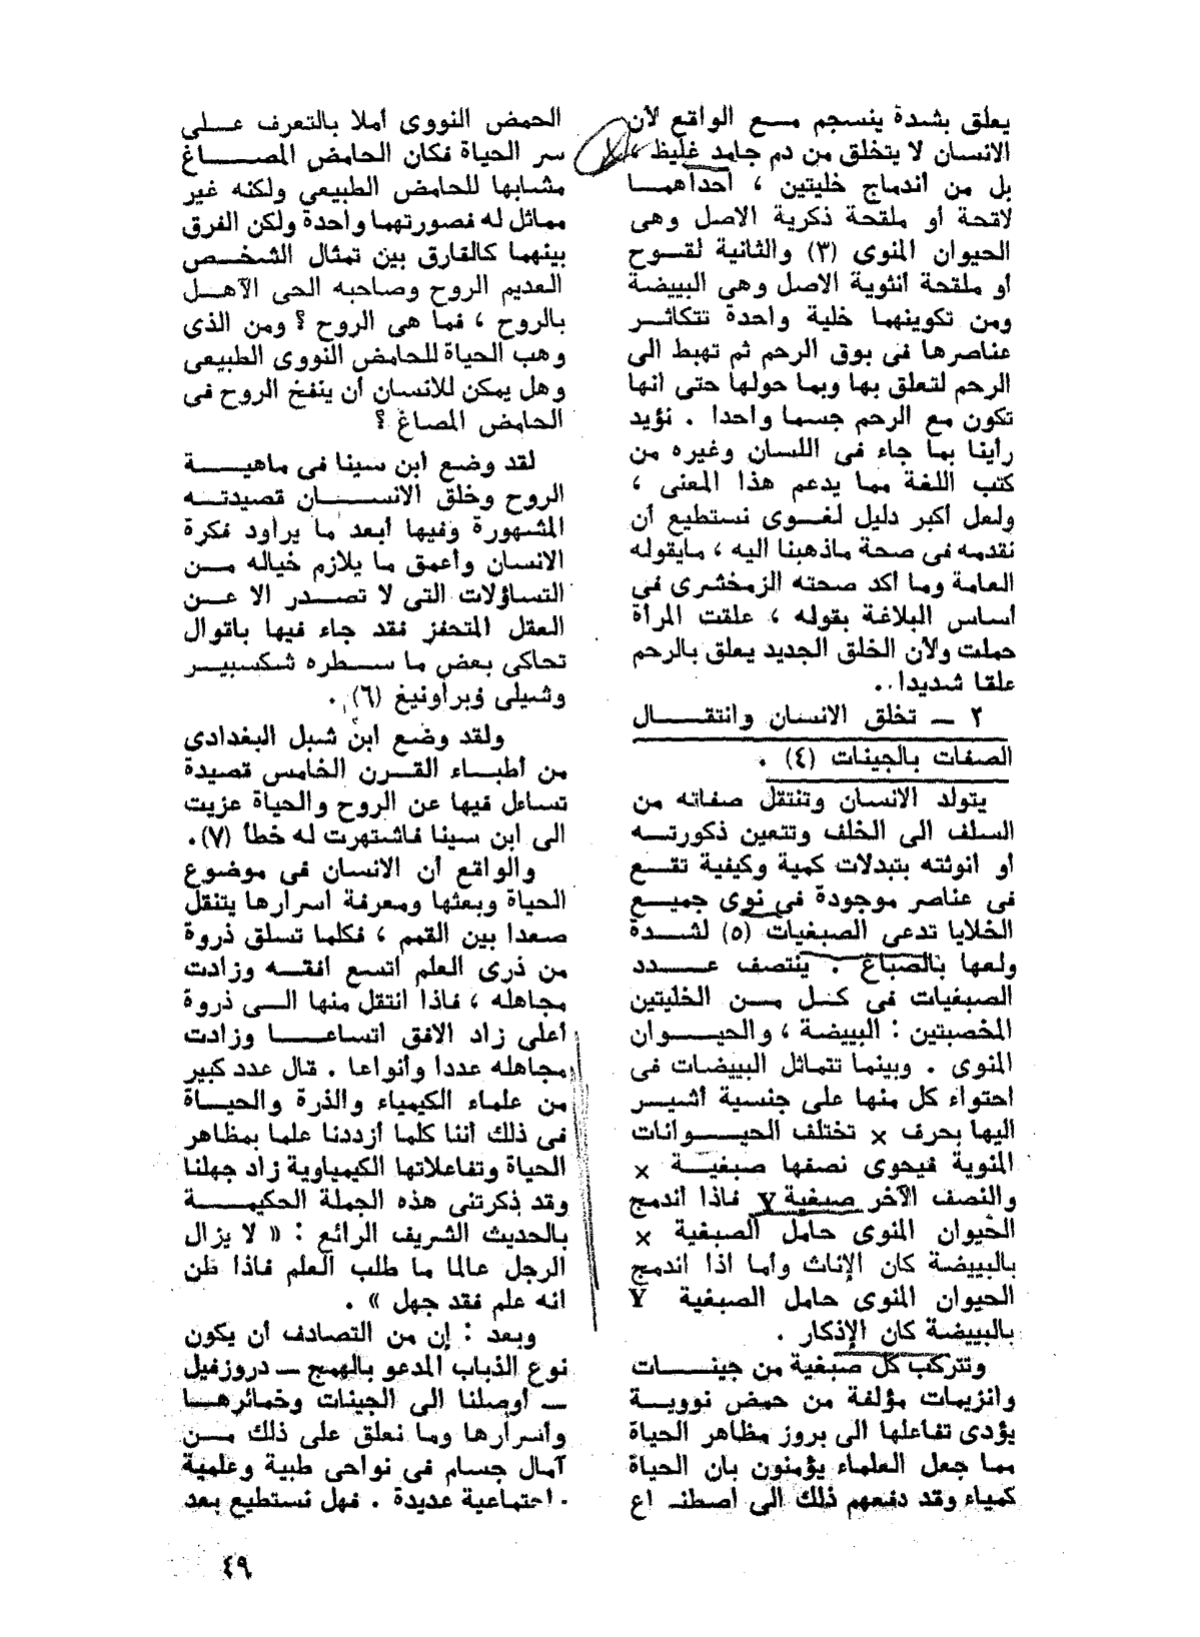 يعلق بشدة ينسجم مع الواقع لأن
الانسان لا يتخلق من دم جامد غليظ ،
بل من أندماج خليتين ، أحداهما
لاقحة أو ملقحة ذكرية الاصل وهى
الحيوان المنوى (٣) والثانية لقوح
أو ملقحة أنثوية الاصل وهى البييضة
ومن تكوينهما خلية واحدة تتكاثر
عناصرها فى بوق الرحم ثم تهبط الى
الرحم لتعلق بها وبما حولها حتى انها
تكون مع الرحم جسما واحدا . نؤيد
رأينا بما جاء فى اللسان وغيره من
كتب اللغة مما يدعم هذا المعنى ،
ولعل أكبر دليل لغوى نستطيع أن
نقدمه فى صحة ماذهبنا اليه ، مايقوله
العامة وما أكد صحته الزمخشرى فى
أساس البلاغة بقوله ، علقت المرأة
حملت ولأن الخلق الجديد يعلق بالرحم
علقا شديدا . .
٢ — تخلق الانسان وانتقال
الصفات بالجينات (٤) .
يتولد الانسان وتنتقل صفاته من
السلف الى الخلف وتتعين ذكورته
أو أنوثته بتبدلات كمية وكيفية تقع
فى عناصر موجودة فى نوى جميع
الخلايا تدعى الصبغيات (٥) لشدة
ولعها بالصباغ . ينتصف عدد
الصبغيات فى كل من الخليتين
المخصبتين : البييضة ، والحيوان
المنوى . وبينما تتماثل البييضات فى
احتواء كل منها على جنسية أشير
اليها بحرف x تختلف الحيوانات
المنوية فيحوى نصفها صبغية x
والنصف الآخر صبغية Y فاذا أندمج
الحيوان المنوى حامل الصبغية x
بالبييضة كان الإناث وأما اذا اندمج
الحيوان المنوى حامل الصبغية Y
بالبييضة كان الإذكار .
وتتركب كل صبغية من جينات
وانزيمات مؤلفة من حمض نووية
يؤدى تفاعلها الى بروز مظاهر الحياة
مما جعل العلماء يؤمنون بان الحياة
كمياء وقد دفعهم ذلك الى اصطناع
الحمض النووى أملا بالتعرف على
سر الحياة فكان الحامض المصاغ
مشابها للحامض الطبيعى ولكنه غير
مماثل له فصورتهما واحدة ولكن الفرق
بينهما كالفارق بين تمثال الشخص
العديم الروح وصاحبه الحى الآهل
بالروح ، فما هى الروح ؟ ومن الذى
وهب الحياة للحامض النووى الطبيعى
وهل يمكن للانسان أن ينفخ الروح فى
الحامض المصاغ ؟
لقد وضع ابن سينا فى ماهية
الروح وخلق الانسان قصيدته
المشهورة وفيها أبعد ما يراود فكرة
الانسان وأعمق ما يلازم خياله من
التساؤلات التى لا تصدر الا عن
العقل المتحفز فقد جاء فيها باقوال
تحاكى بعض ما سطره شكسبير
وشيلى وبراونيغ (٦) .
ولقد وضع ابن شبل البغدادى
من أطباء القرن الخامس قصيدة
تساءل فيها عن الروح والحياة عزيت
الى ابن سينا فاشتهرت له خطأ (٧) .
والواقع أن الانسان فى موضوع
الحياة وبعثها ومعرفة اسرارها يتنقل
صعدا بين القمم ، فكلما تسلق ذروة
من ذرى العلم أتسع أفقه وزادت
مجاهله ، فاذا انتقل منها الى ذروة
أعلى زاد الافق اتساعا وزادت
مجاهله عددا وأنواعا . قال عدد كبير
من علماء الكيمياء والذرة والحياة
فى ذلك أننا كلما أزددنا علما بمظاهر
الحياة وتفاعلاتها الكيمياوية زاد جهلنا
وقد ذكرتنى هذه الجملة الحكيمة
بالحديث الشريف الرائع : « لا يزال
الرجل عالما ما طلب العلم فاذا ظن
انه علم فقد جهل » .
وبعد : إن من التصادف أن يكون
نوع الذباب المدعو بالهمج — دروزفيل
— أوصلنا الى الجينات وخمائرها
وأسرارها وما نعلق على ذلك من
آمال جسام فى نواحى طبية وعلمية
. احتماعية عديدة . فهل نستطيع بعد
٤٩